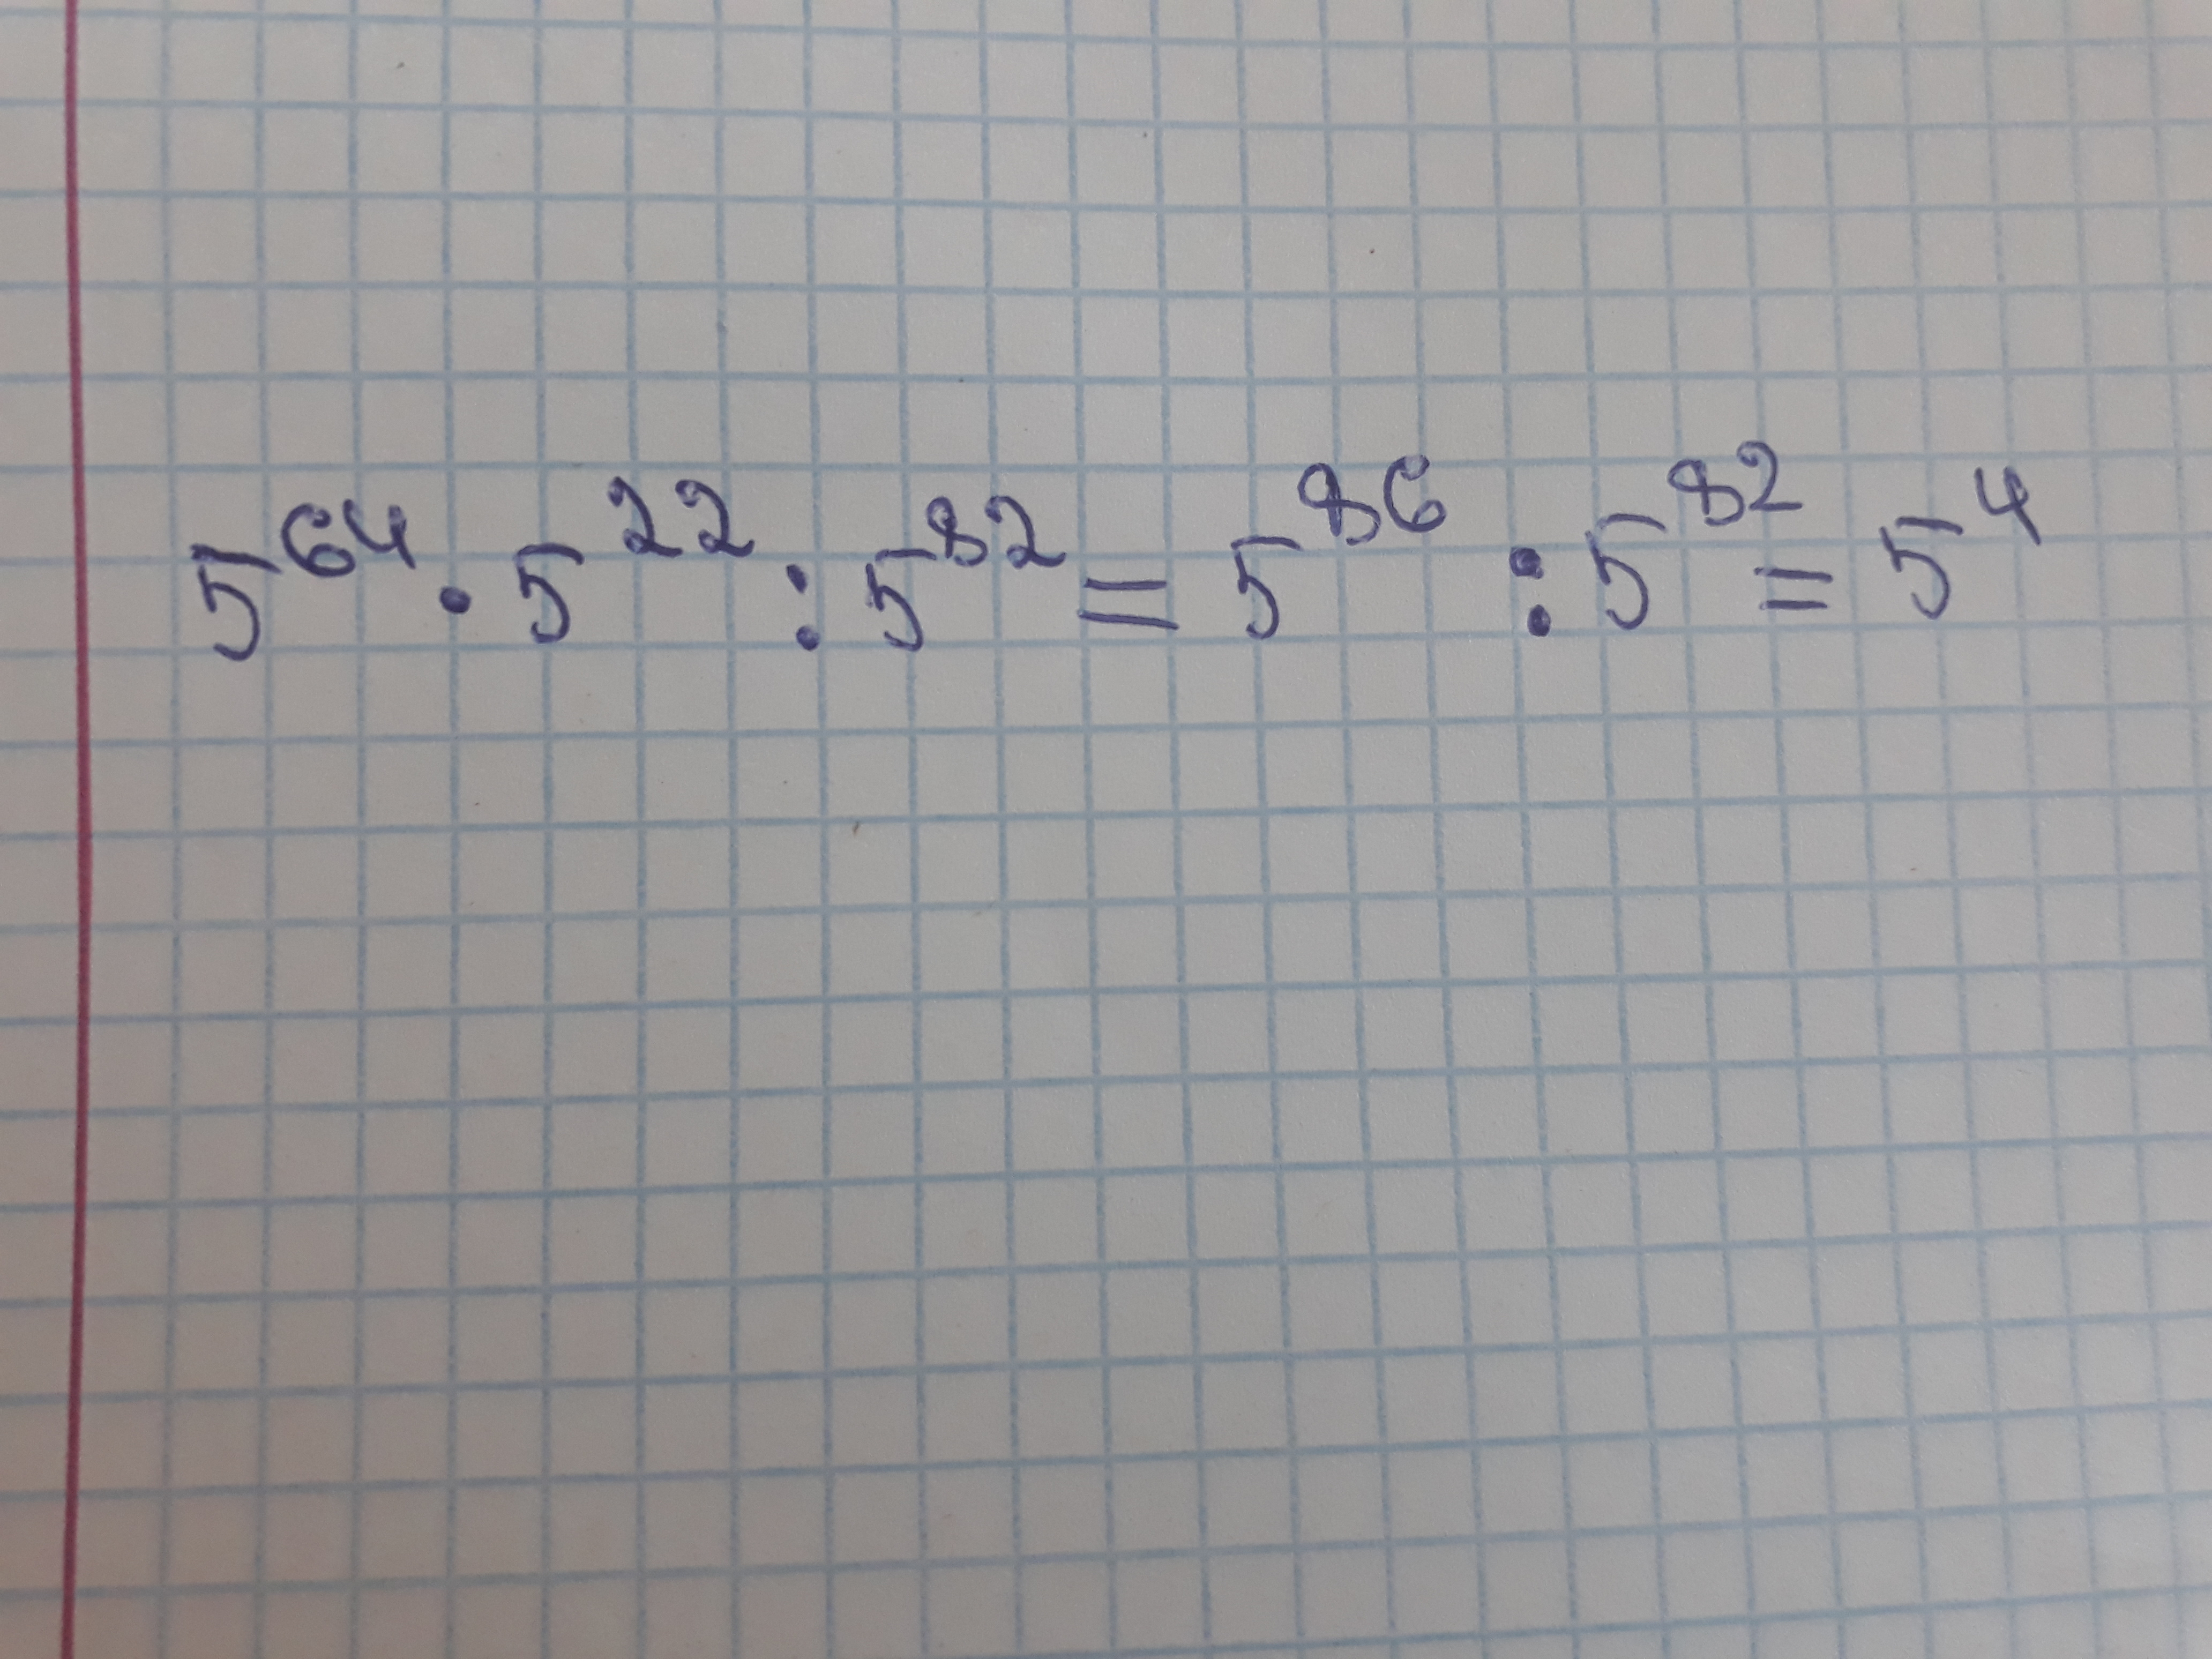 5^64 · 5^22 : 5^82 = 5^86 : 5^82 = 5^4